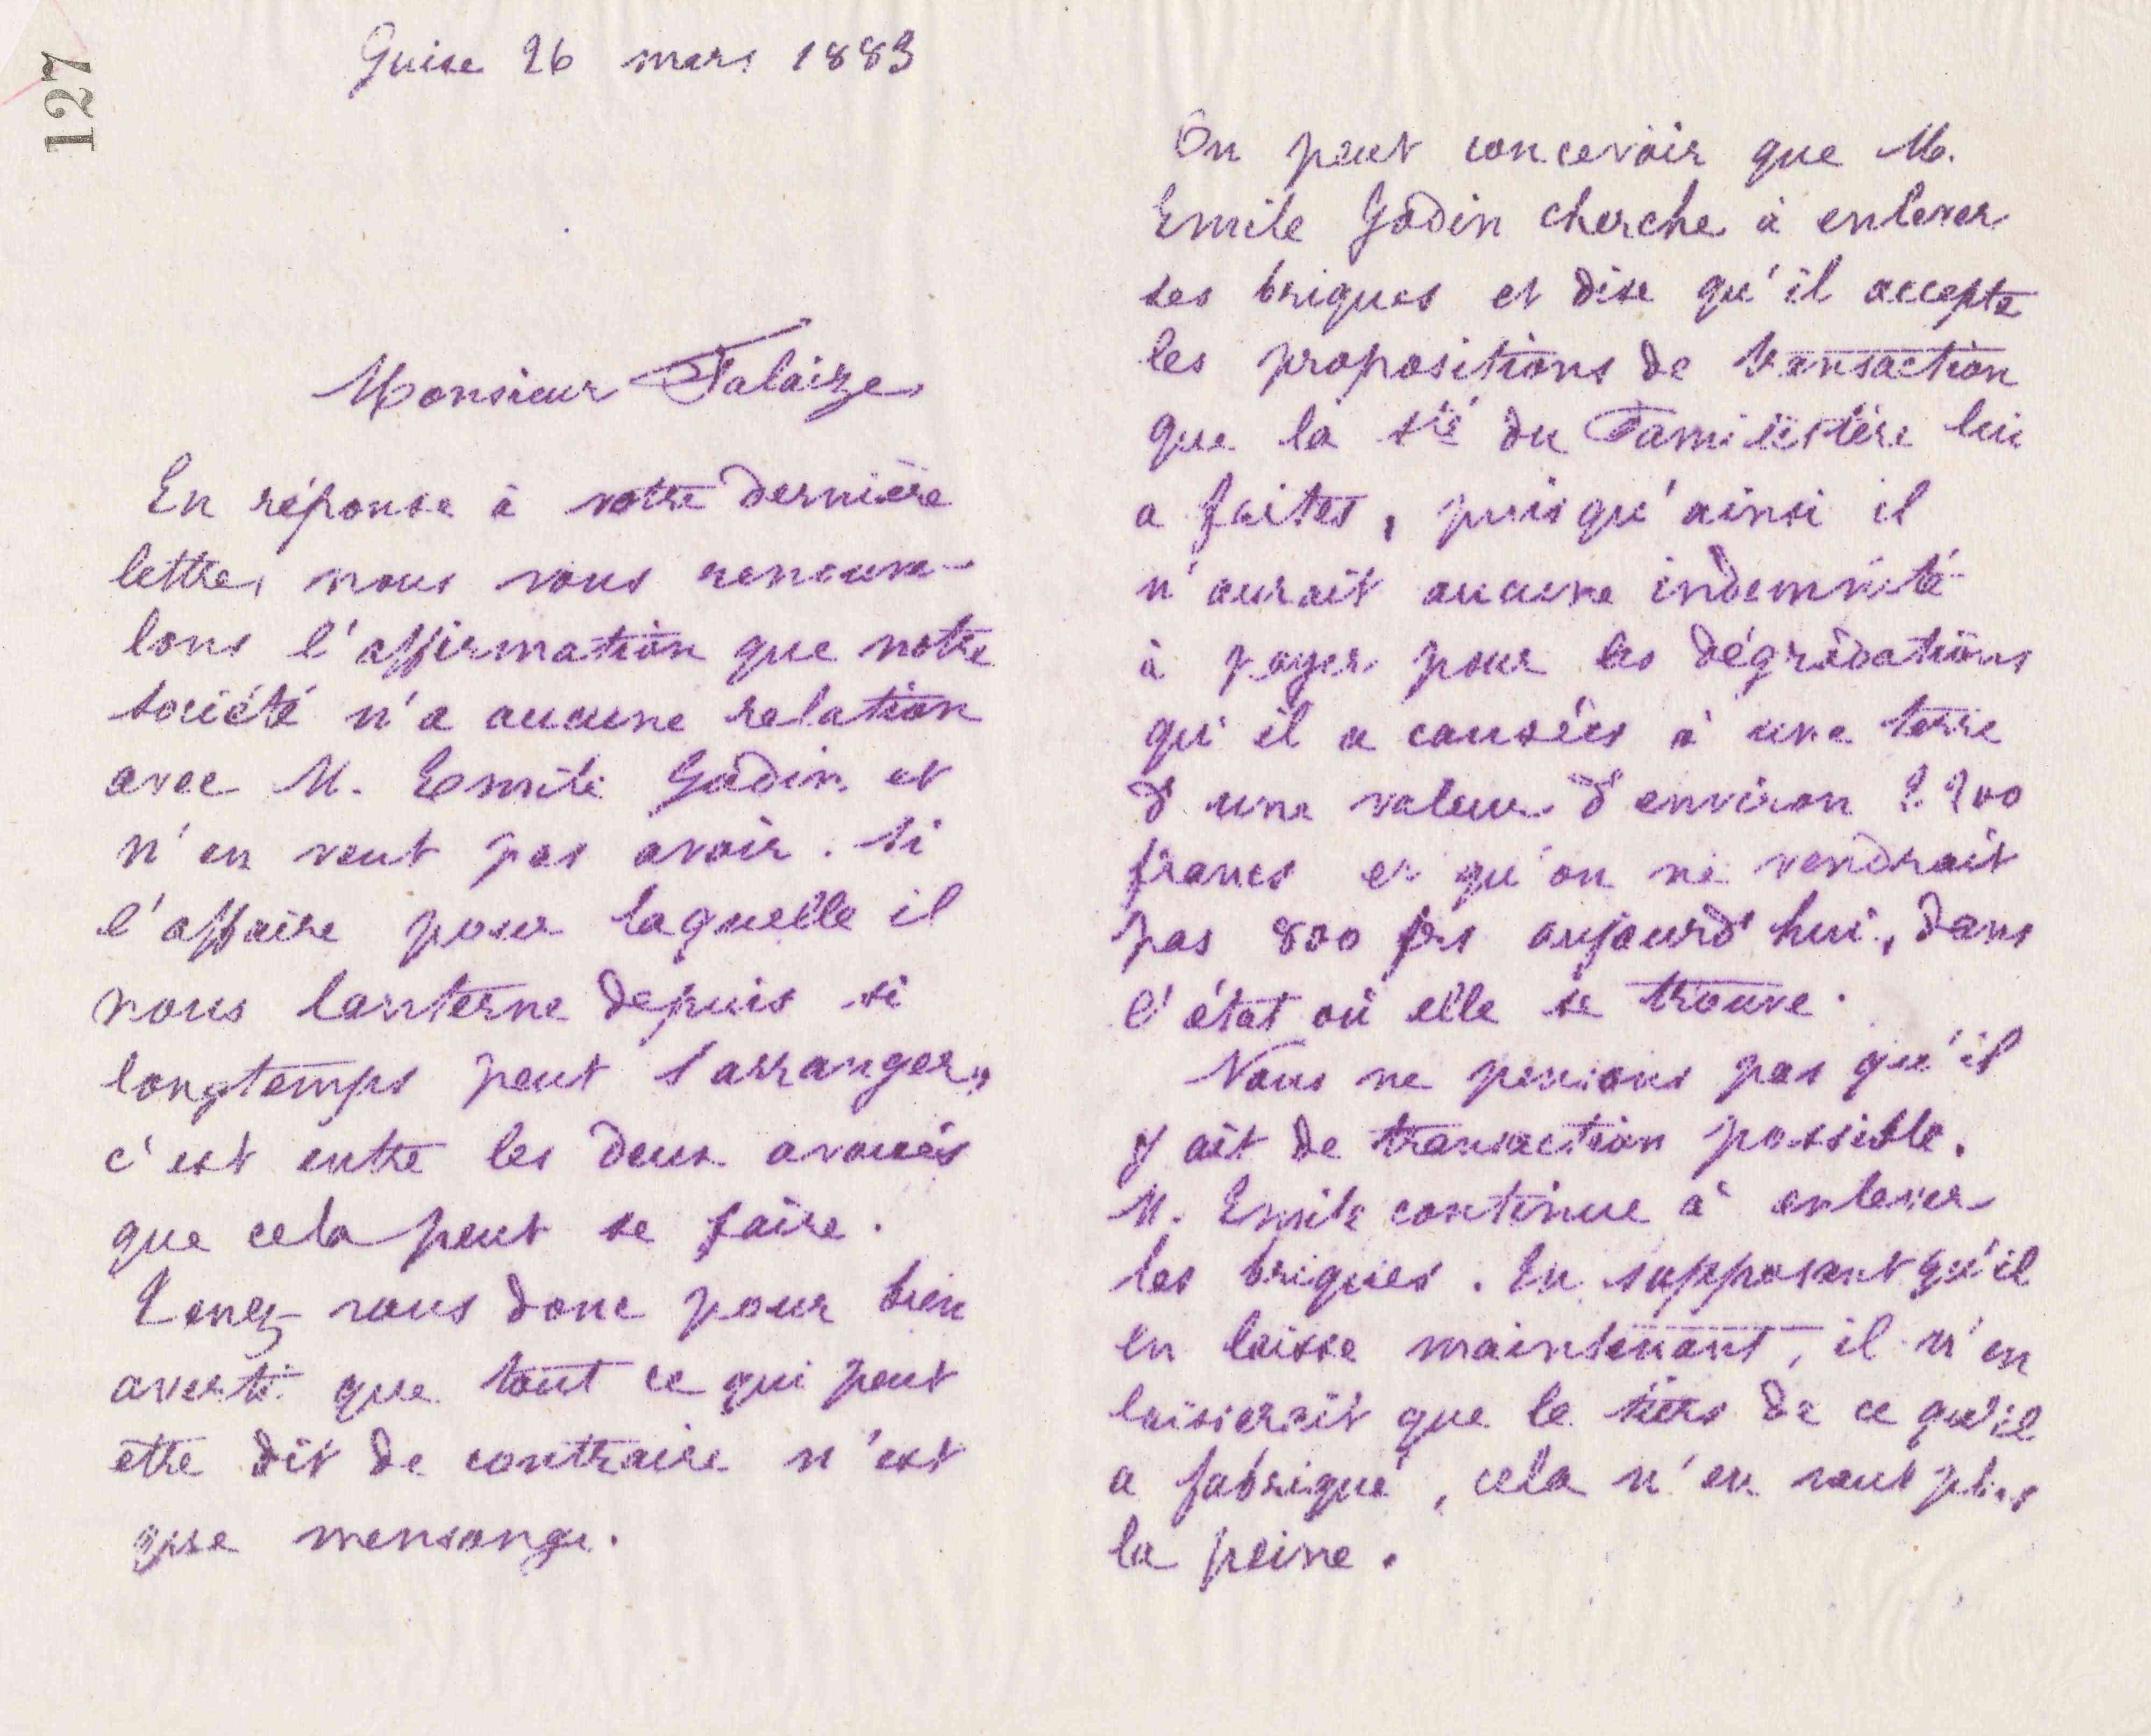 127
Guise 26 mars 1883
Monsieur Falaize
En réponse à votre dernière
lettre, nous vous renouve-
lons l'affirmation que notre
société n'a aucune relation
avec M. Emile Godin et
n'en veut pas avoir. Si
l'affaire pour laquelle il
nous lanterne depuis si
longtemps peut s'arranger,
c'est entre les deux avoués
que cela peut se faire.
Tenez-vous donc pour bien
averti que tout ce qui peut
etre dit de contraire n'est
que mensonge.
On peut concevoir que M.
Emile Godin cherche à enlever
ses briques et dise qu'il accepte
les propositions de transaction
que la Sté du Familistère lui
a faites, puisqu'ainsi il
n'aurait aucune indemnité
à payer pour les dégradations
qu'il a causées à une terre
d'une valeur d'environ
francs et qu'on ne vendrait
pas 800 frs aujourd'hui, dans
l'état où elle se trouve.
Nous ne pensons pas qu'il
y ait de transaction possible.
M. Emile continue à enlever
les briques. En supposant qu'il
en laisse maintenant, il n'en
laisserait que le tiers de ce qu'il
a fabriqué, cela n'en vaut plus
la peine.